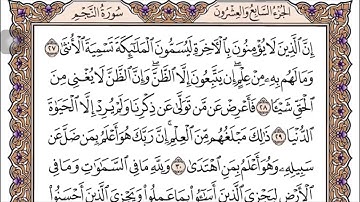 الجزء السابع والعشرون سورة النجم
إِنَّ ٱلَّذِينَ لَا يُؤْمِنُونَ بِٱلْأَخِرَةِ لَيُسَمُّونَ ٱلْمَلَٰٓئِكَةَ تَسْمِيَةَ ٱلْأُنثَىٰ ٢٧
وَمَا لَهُم بِهِۦ مِنْ عِلْمٍ ۖ إِن يَتَّبِعُونَ إِلَّا ٱلظَّنَّ ۖ وَإِنَّ ٱلظَّنَّ لَا يُغْنِى مِنَ
ٱلْحَقِّ شَيْـًٔا ٢٨ فَأَعْرِضْ عَن مَّن تَوَلَّىٰ عَن ذِكْرِنَا وَلَمْ يُرِدْ إِلَّا ٱلْحَيَوٰةَ
ٱلدُّنْيَا ٢٩ ذَٰلِكَ مَبْلَغُهُم مِّنَ ٱلْعِلْمِ ۚ إِنَّ رَبَّكَ هُوَ أَعْلَمُ بِمَن ضَلَّ عَن
سَبِيلِهِۦ وَهُوَ أَعْلَمُ بِمَنِ ٱهْتَدَىٰ ٣٠ وَلِلَّهِ مَا فِى ٱلسَّمَٰوَٰتِ وَمَا فِى
ٱلْأَرْضِ لِيَجْزِىَ ٱلَّذِينَ أَسَٰٓـُٔوا۟ بِمَا عَمِلُوا۟ وَيَجْزِىَ ٱلَّذِينَ أَحْسَنُوا۟